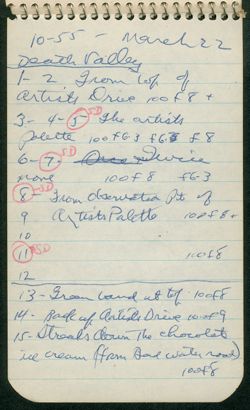 10-55 - March 22
Death Valley
1-2 From top of
Artists Drive 100 f 8 +
3-4-5 SD The artists
palette 100 f 6.3 f 6.3 f 8
6-7- SD Drive
more 100 f 8 f 6.3
8 SD - From observation Pt. of
9 Artists Palette 100 f 8 +
10
11 SD 100 f 8
12
13 - Green band at top - 100 f 8
14 - Back of Artists Drive 100 f 9
15 - Streaks down the chocolate
ice cream (from Bad water road)
100 f 8